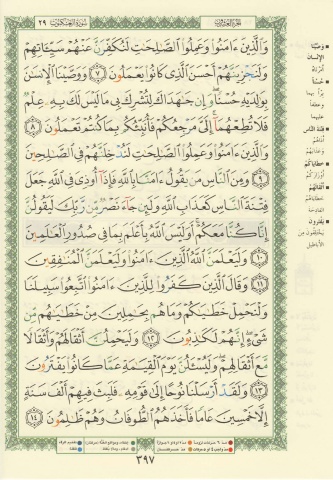 الجزء العشرون
سورة العنكبوت ٢٩
وَٱلَّذِينَ ءَامَنُوا۟ وَعَمِلُوا۟ ٱلصَّـٰلِحَـٰتِ لَنُكَفِّرَنَّ عَنْهُمْ سَيِّـَٔاتِهِمْ
وَلَنَجْزِيَنَّهُمْ أَحْسَنَ ٱلَّذِى كَانُوا۟ يَعْمَلُونَ ﴿٧﴾ وَوَصَّيْنَا ٱلْإِنسَـٰنَ
بِوَٰلِدَيْهِ حُسْنًا وَإِن جَـٰهَدَاكَ لِتُشْرِكَ بِى مَا لَيْسَ لَكَ بِهِۦ عِلْمٌ
فَلَا تُطِعْهُمَآ إِلَىَّ مَرْجِعُكُمْ فَأُنَبِّئُكُم بِمَا كُنتُمْ تَعْمَلُونَ ﴿٨﴾
وَٱلَّذِينَ ءَامَنُوا۟ وَعَمِلُوا۟ ٱلصَّـٰلِحَـٰتِ لَنُدْخِلَنَّهُمْ فِى ٱلصَّـٰلِحِينَ
﴿٩﴾ وَمِنَ ٱلنَّاسِ مَن يَقُولُ ءَامَنَّا بِٱللَّهِ فَإِذَآ أُوذِىَ فِى ٱللَّهِ جَعَلَ
فِتْنَةَ ٱلنَّاسِ كَعَذَابِ ٱللَّهِ وَلَئِن جَآءَ نَصْرٌ مِّن رَّبِّكَ لَيَقُولُنَّ
إِنَّا كُنَّا مَعَكُمْ أَوَلَيْسَ ٱللَّهُ بِأَعْلَمَ بِمَا فِى صُدُورِ ٱلْعَـٰلَمِينَ
﴿١٠﴾ وَلَيَعْلَمَنَّ ٱللَّهُ ٱلَّذِينَ ءَامَنُوا۟ وَلَيَعْلَمَنَّ ٱلْمُنَـٰفِقِينَ
﴿١١﴾ وَقَالَ ٱلَّذِينَ كَفَرُوا۟ لِلَّذِينَ ءَامَنُوا۟ ٱتَّبِعُوا۟ سَبِيلَنَا
وَلْنَحْمِلْ خَطَـٰيَـٰكُمْ وَمَا هُم بِحَـٰمِلِينَ مِنْ خَطَـٰيَـٰهُم مِّن
شَىْءٍ إِنَّهُمْ لَكَـٰذِبُونَ ﴿١٢﴾ وَلَيَحْمِلُنَّ أَثْقَالَهُمْ وَأَثْقَالًا
مَّعَ أَثْقَالِهِمْ وَلَيُسْـَٔلُنَّ يَوْمَ ٱلْقِيَـٰمَةِ عَمَّا كَانُوا۟ يَفْتَرُونَ
﴿١٣﴾ وَلَقَدْ أَرْسَلْنَا نُوحًا إِلَىٰ قَوْمِهِۦ فَلَبِثَ فِيهِمْ أَلْفَ سَنَةٍ
إِلَّا خَمْسِينَ عَامًا فَأَخَذَهُمُ ٱلطُّوفَانُ وَهُمْ ظَـٰلِمُونَ ﴿١٤﴾
٣٩٧
وصّينا
الإنسان
أمرناه
حسنا
فتنة الناس
خطاياكم
أوزاركم
أثقالهم
يفترون